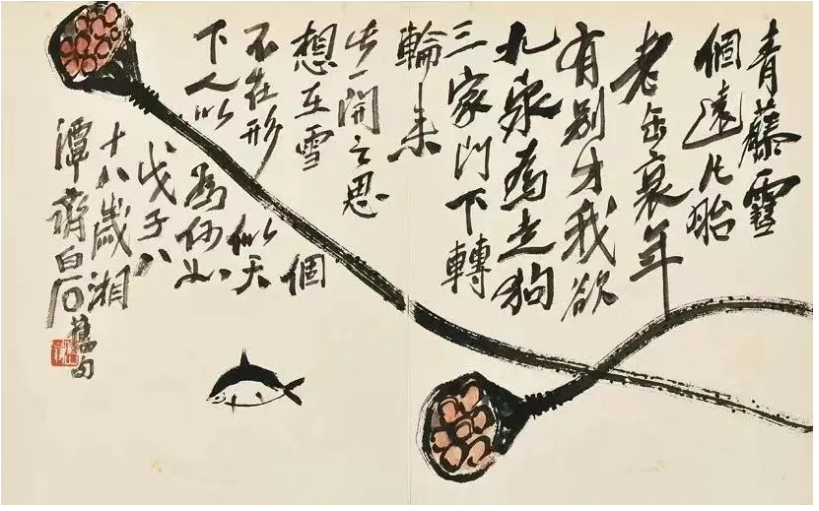 青藤雪
個遠凡胎
老缶衰年
有别才我欲
九泉為走狗
三家門下轉
輪来
此一開之思
想在雪個
不在形似天
下人以為何如
戊子八
十八歲湘
潭齊白石
舊句